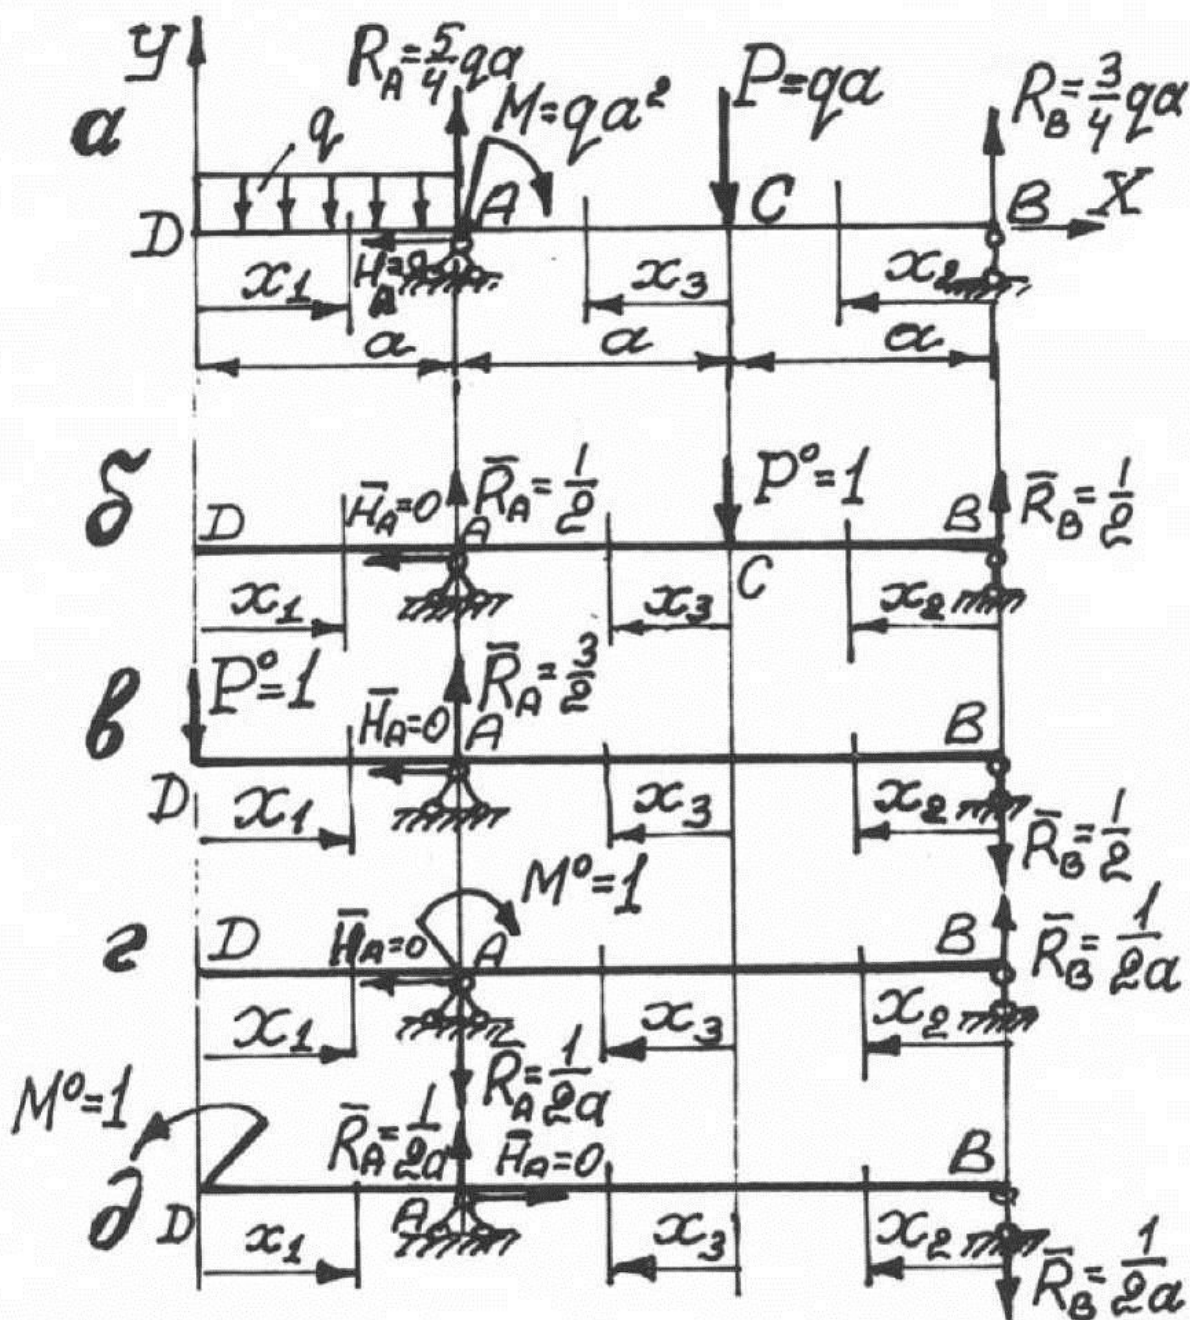 y
R_A=5/4qa
M=qa²
P=qa
R_B=3/4qa
а
q
D
A
C
B
X
H_A=0
x₁
x₃
x₂
a
a
a
б
D
H̄_A=0
R̄_A=1/2
A
P°=1
C
B
R̄_B=1/2
x₁
x₃
x₂
в
P°=1
H̄_A=0
R̄_A=3/2
A
B
D
x₁
x₃
x₂
R̄_B=1/2
M°=1
г
D
H̄_A=0
A
B
R̄_B=1/2a
x₁
x₃
x₂
R̄_A=1/2a
M°=1
R̄_A=1/2a
H̄_A=0
B
д
D
A
x₁
x₃
x₂
R̄_B=1/2a